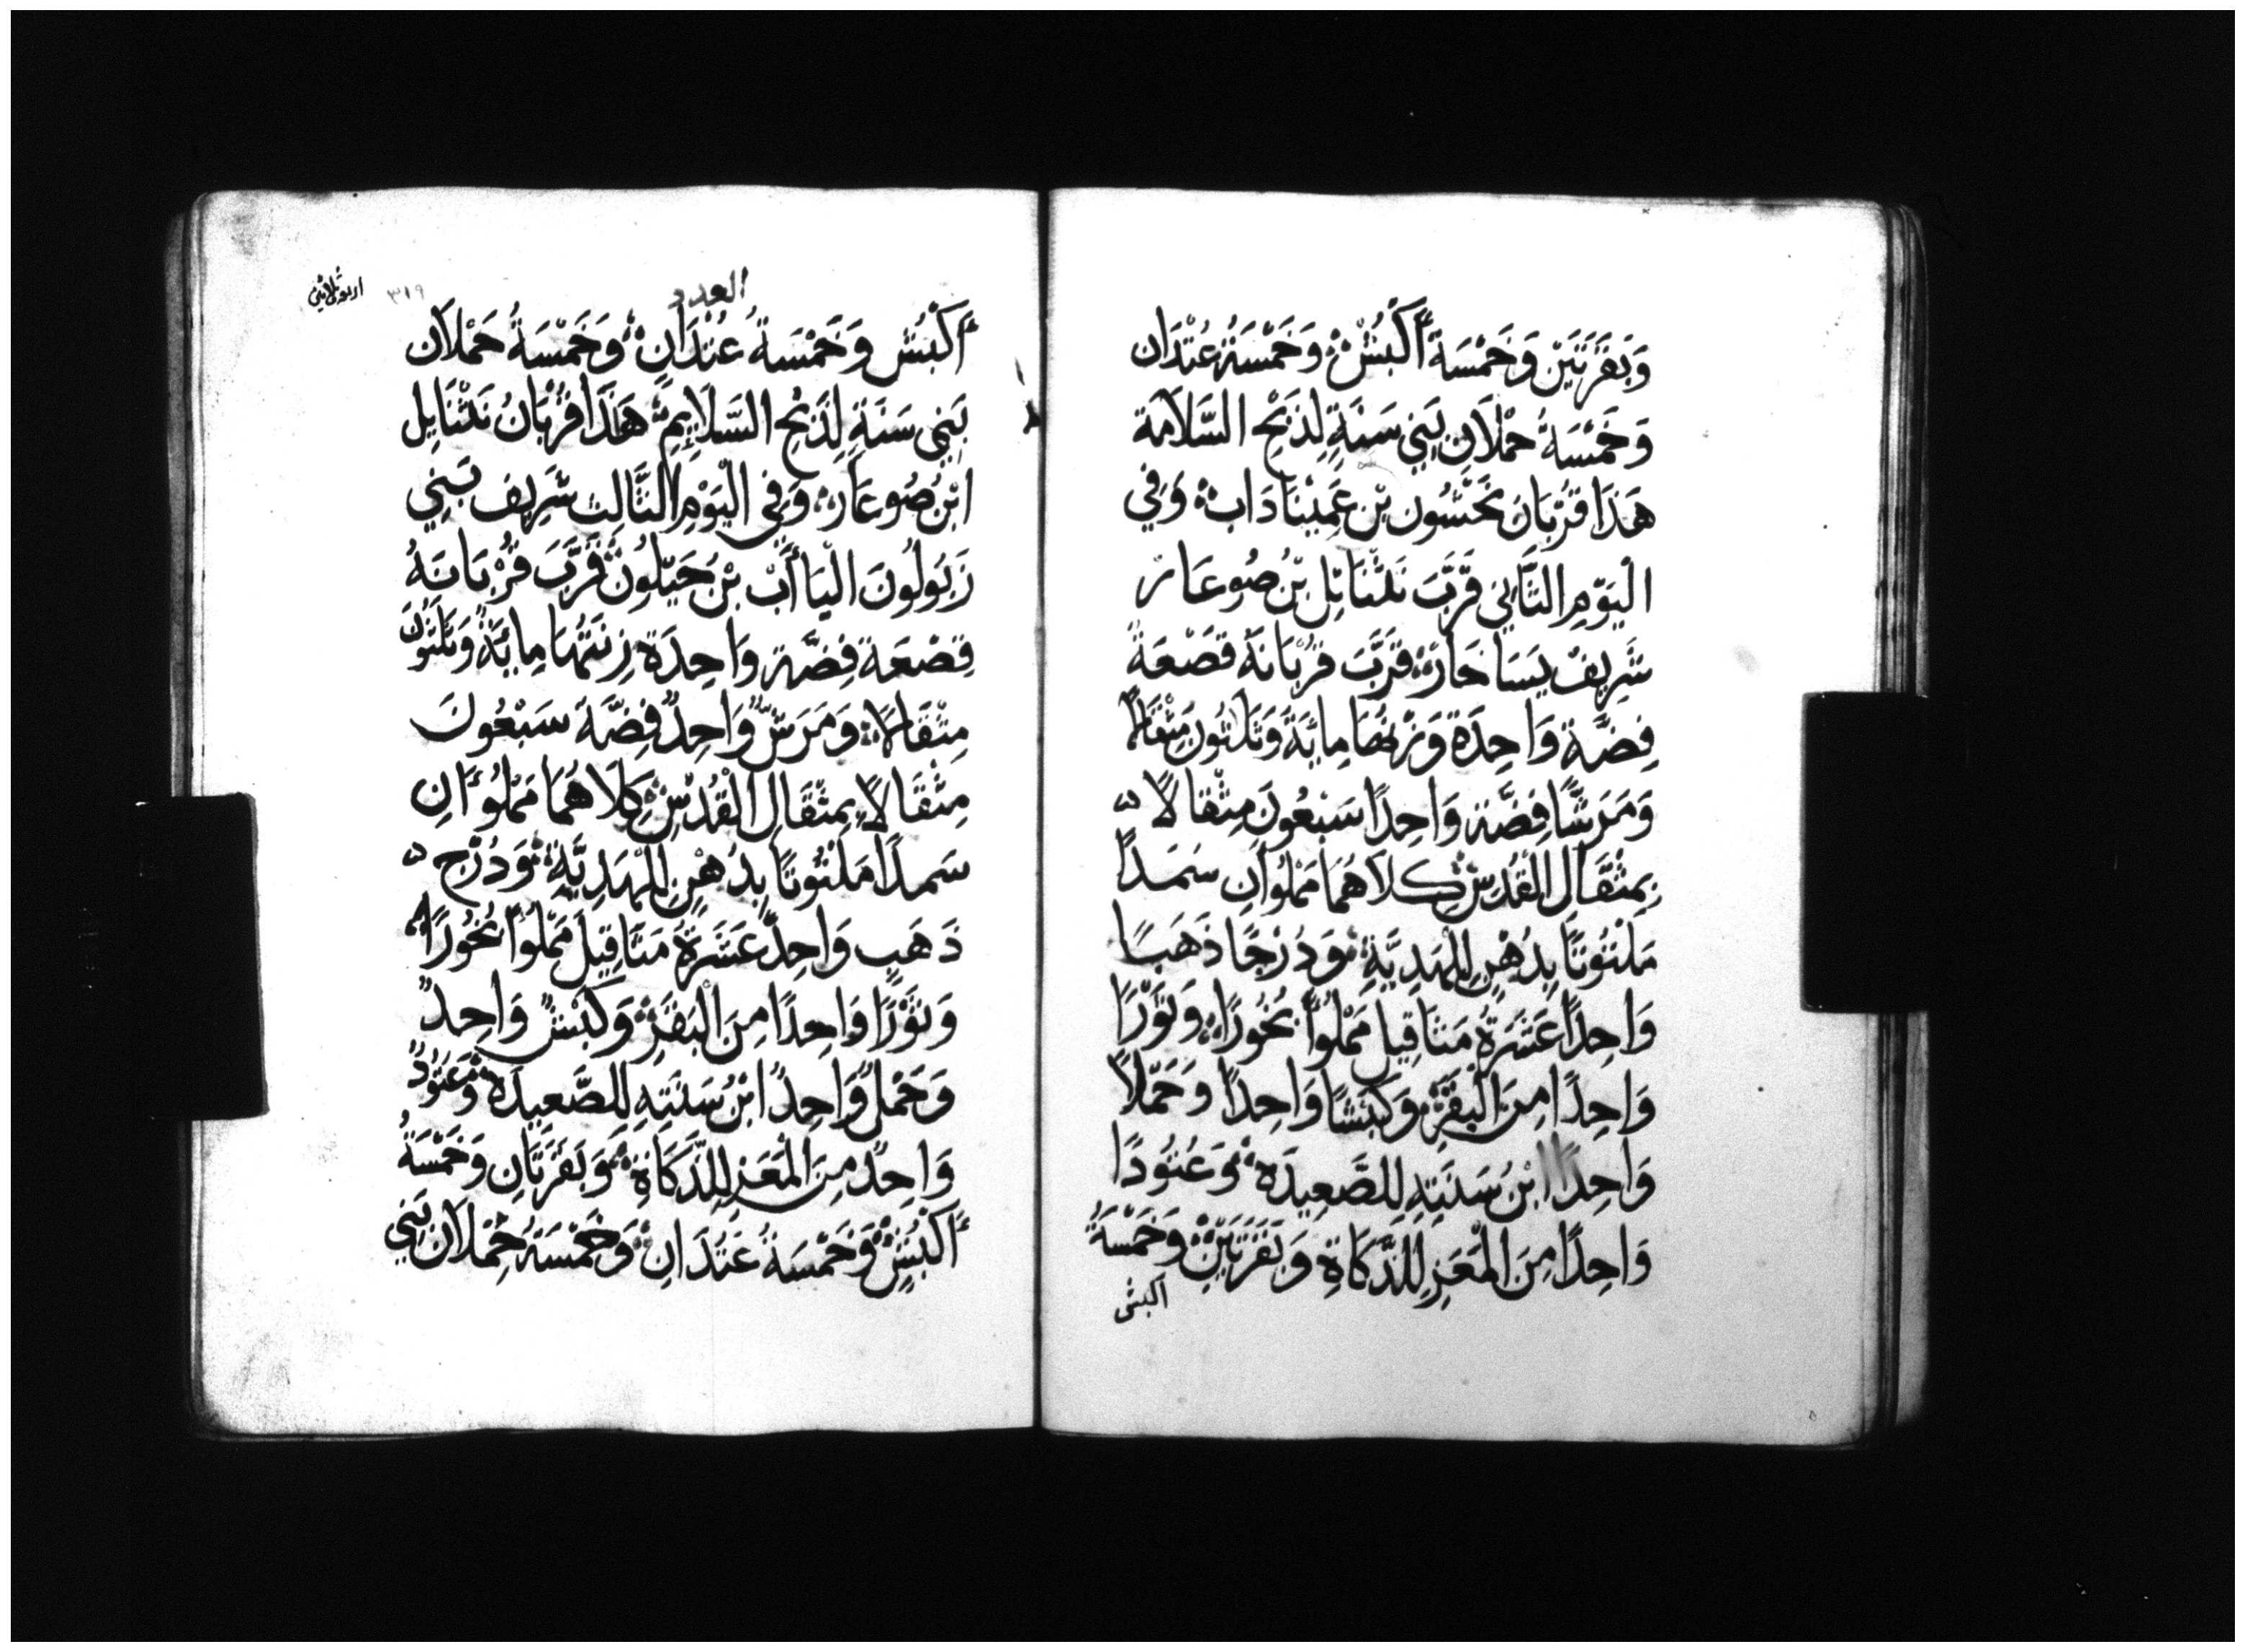 وَبَقَرَتَيْنِ وَخَمْسَةَ أَكْبُشٍ وَخَمْسَةُ عِتْدَان
وَخَمْسَةُ حُمْلَانٍ بَنِي سَنَةٍ لِذَبْحِ السَّلَامَة
هَذَا قُرْبَان نَحْشُون بْن عَمِيْنَادَاب وَفِي
الْيَوْمِ الثَّانِي قَرَّبَ نَثْنَائِل بْن صُوعَار
شَرِيفُ يَسَاخَار قَرَّبَ قُرْبَانَهُ قَصْعَةً
فِضَّة وَاحِدَة وَزْنُهَا مِائَةُ وَثَلَثُونَ مِثْقَالًا
وَمَرَشًّا فِضَّة وَاحِدًا سَبْعُونَ مِثْقَالًا
بِمِثْقَالِ الْقُدْسِ كِلَاهُمَا مَمْلُوآنِ سَمَدًا
مَلْتُوتًا بِدُهْنٍ لِلْهَدِيَّةِ وَدُرْجًا ذَهَبًا
وَاحِدًا عَشَرَةُ مَثَاقِيلَ مَمْلُوًّا بَخُورًا وَثَوْرًا
وَاحِدًا مِنَ الْبَقَرِ وَكَبْشًا وَاحِدًا وَحَمَلًا
وَاحِدًا ابْنُ سَنَتِهِ لِلصَّعِيدَه وَعَتُودًا
وَاحِدًا مِنَ الْمَعَزِ لِلذَّكَاةِ وَبَقَرَتَيْنِ وَخَمْسَةُ
اكبش
٣١٩
العدد
أَكْبُش وَخَمْسَةُ عُتْدَانٍ وَخَمْسَةُ حُمْلَان
بَنِي سَنَةٍ لِذَبْحِ السَّلَايِمِ هَذَا قُرْبَانُ نَثْنَايِل
ابْنُ صُوعَار وَفِي الْيَوْمِ الثَّالِث شَرِيف بَنِي
زَبُولُونَ الْيَأَاب بْنُ حَيَلُون قَرَّبَ قُرْبَانَهُ
قَصْعَة فِضَّة وَاحِدَة زِنَتُهَا مِائَةٌ وَثَلَثُونَ
مِثْقَالًا وَمَرَشٌّ وَاحِدٌ فِضَّة سَبْعُونَ
مِثْقَالًا بِمِثْقَالِ الْقُدْسِ كِلَاهُمَا مَمْلُوآنِ
سَمَدًا مَلْتُوتًا بِدُهْنٍ لِلْهَدِيَّةِ وَدُرْج
ذَهَبٍ وَاحِدٌ عَشَرَةُ مَثَاقِيل مَمْلُوًّا بَخُورًا
وَثَوْرًا وَاحِدًا مِنَ الْبَقَرِ وَكَبْشٌ وَاحِدٌ
وَحَمْلٌ وَاحِدٌ ابْنُ سَنَتِهِ لِلصَّعِيدَه وَعَتُودٌ
وَاحِدٌ مِنَ الْمَعَزِ لِلذَّكَاةِ وَبَقَرَتَانِ وَخَمْسَةُ
أَكْبُشٍ وَخَمْسَةُ عَتْدَانٍ وَخَمْسَةُ حُمْلَان بَنِي